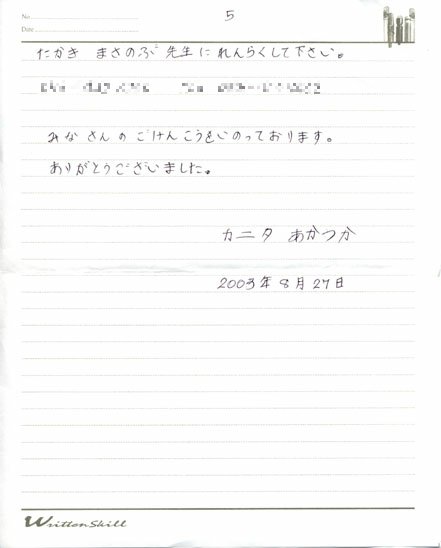 No.
5
Date
たかき まさのぶ 先生に れんらくして下さい。
みなさんの ごけんこうをいのっております。
ありがとうございました。
カニタ あかつか
2003年 8月 27日
Written Skill